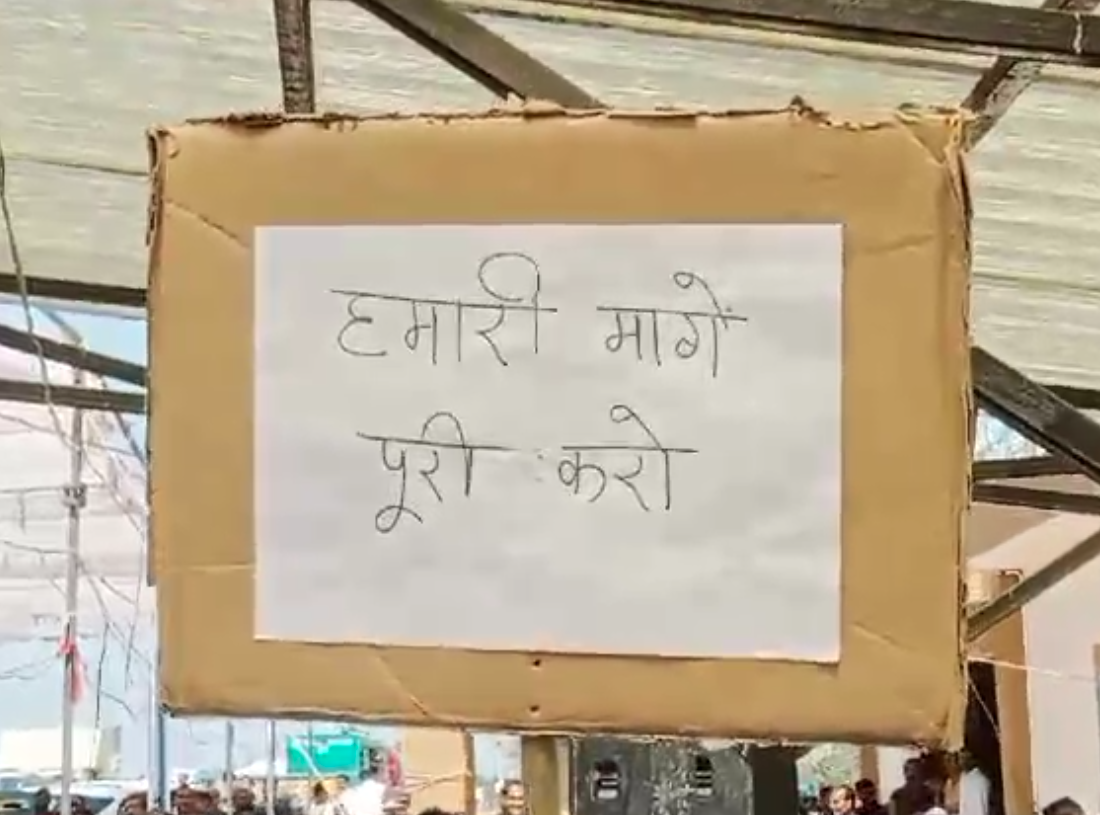 हमारी मागें
पूरी करो